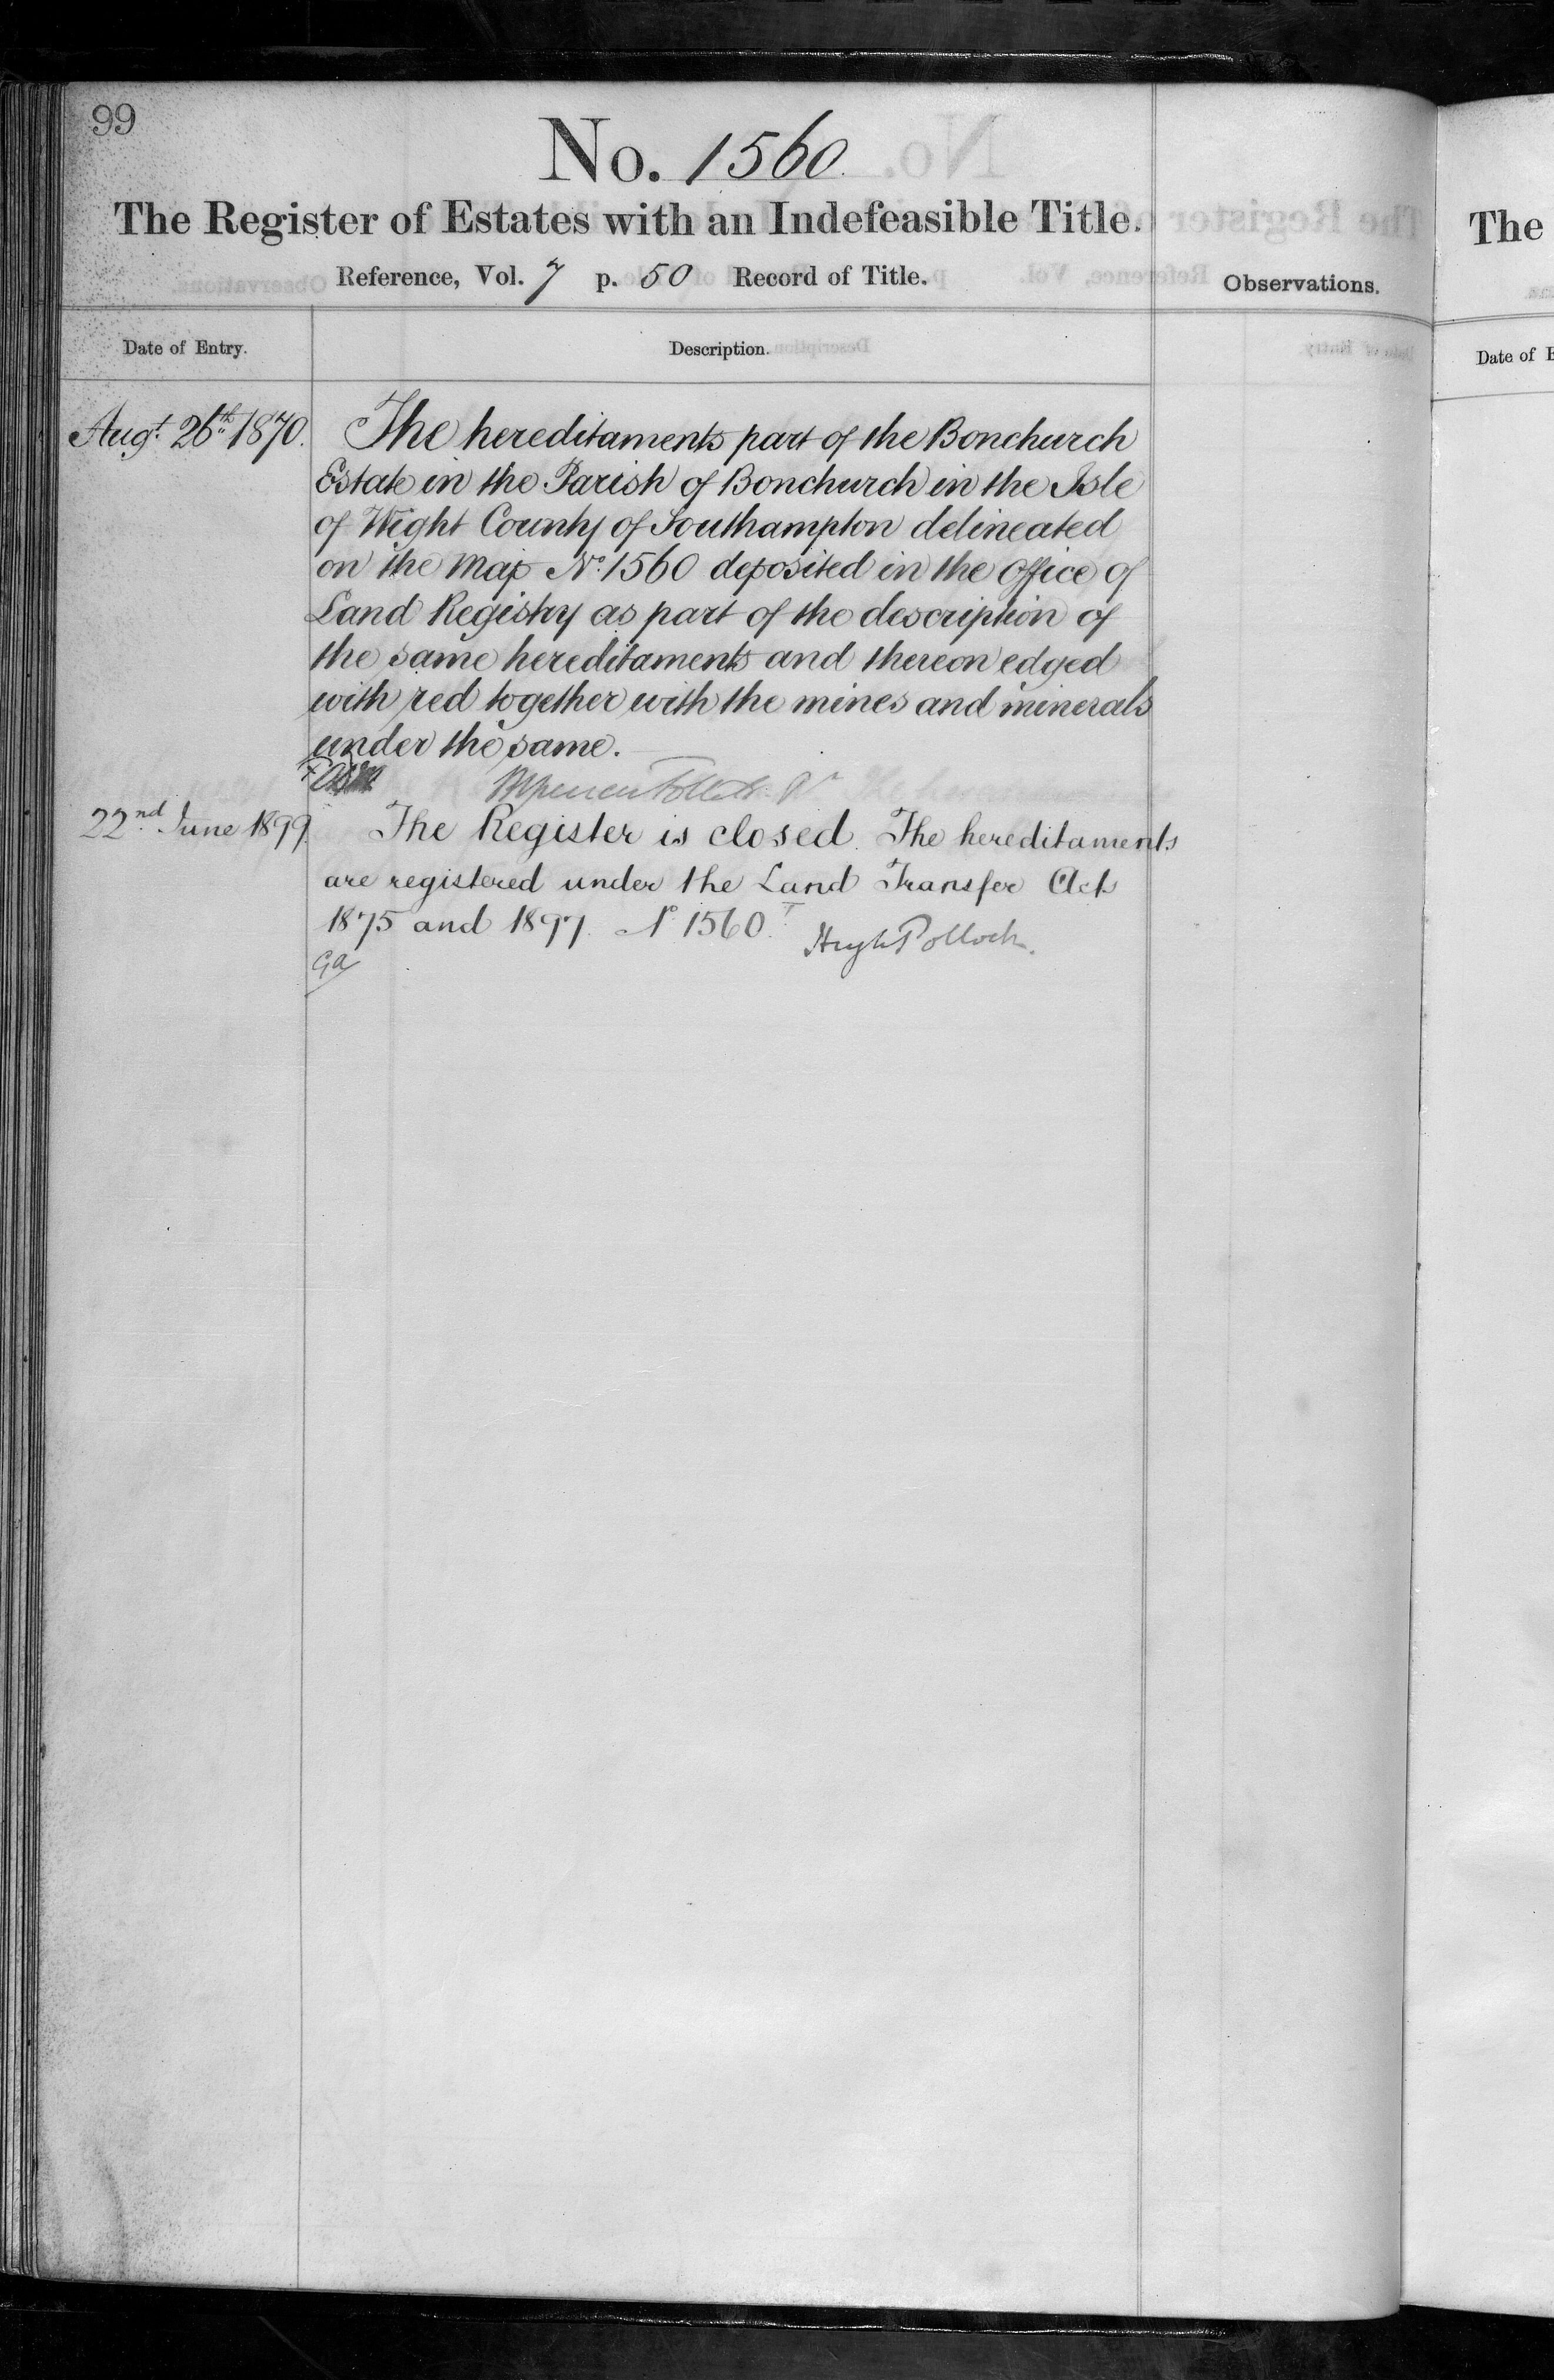 99
No. 1560.
The Register of Estates with an Indefeasible Title.
Reference, Vol. 7 p. 50 Record of Title.
Observations.
Date of Entry.
Description.
Augt. 26th 1870.
The hereditaments part of the Bonchurch
Estate in the Parish of Bonchurch in the Isle
of Wight County of Southampton delineated
on the Map No. 1560 deposited in the Office of
Land Registry as part of the description of
the same hereditaments and thereon edged
with red together with the mines and minerals
under the same.
22nd June 1899.
The Register is closed. The hereditaments
are registered under the Land Transfer Acts
1875 and 1897. No 1560.
Hugh Pollock.
GA
The
Date of E